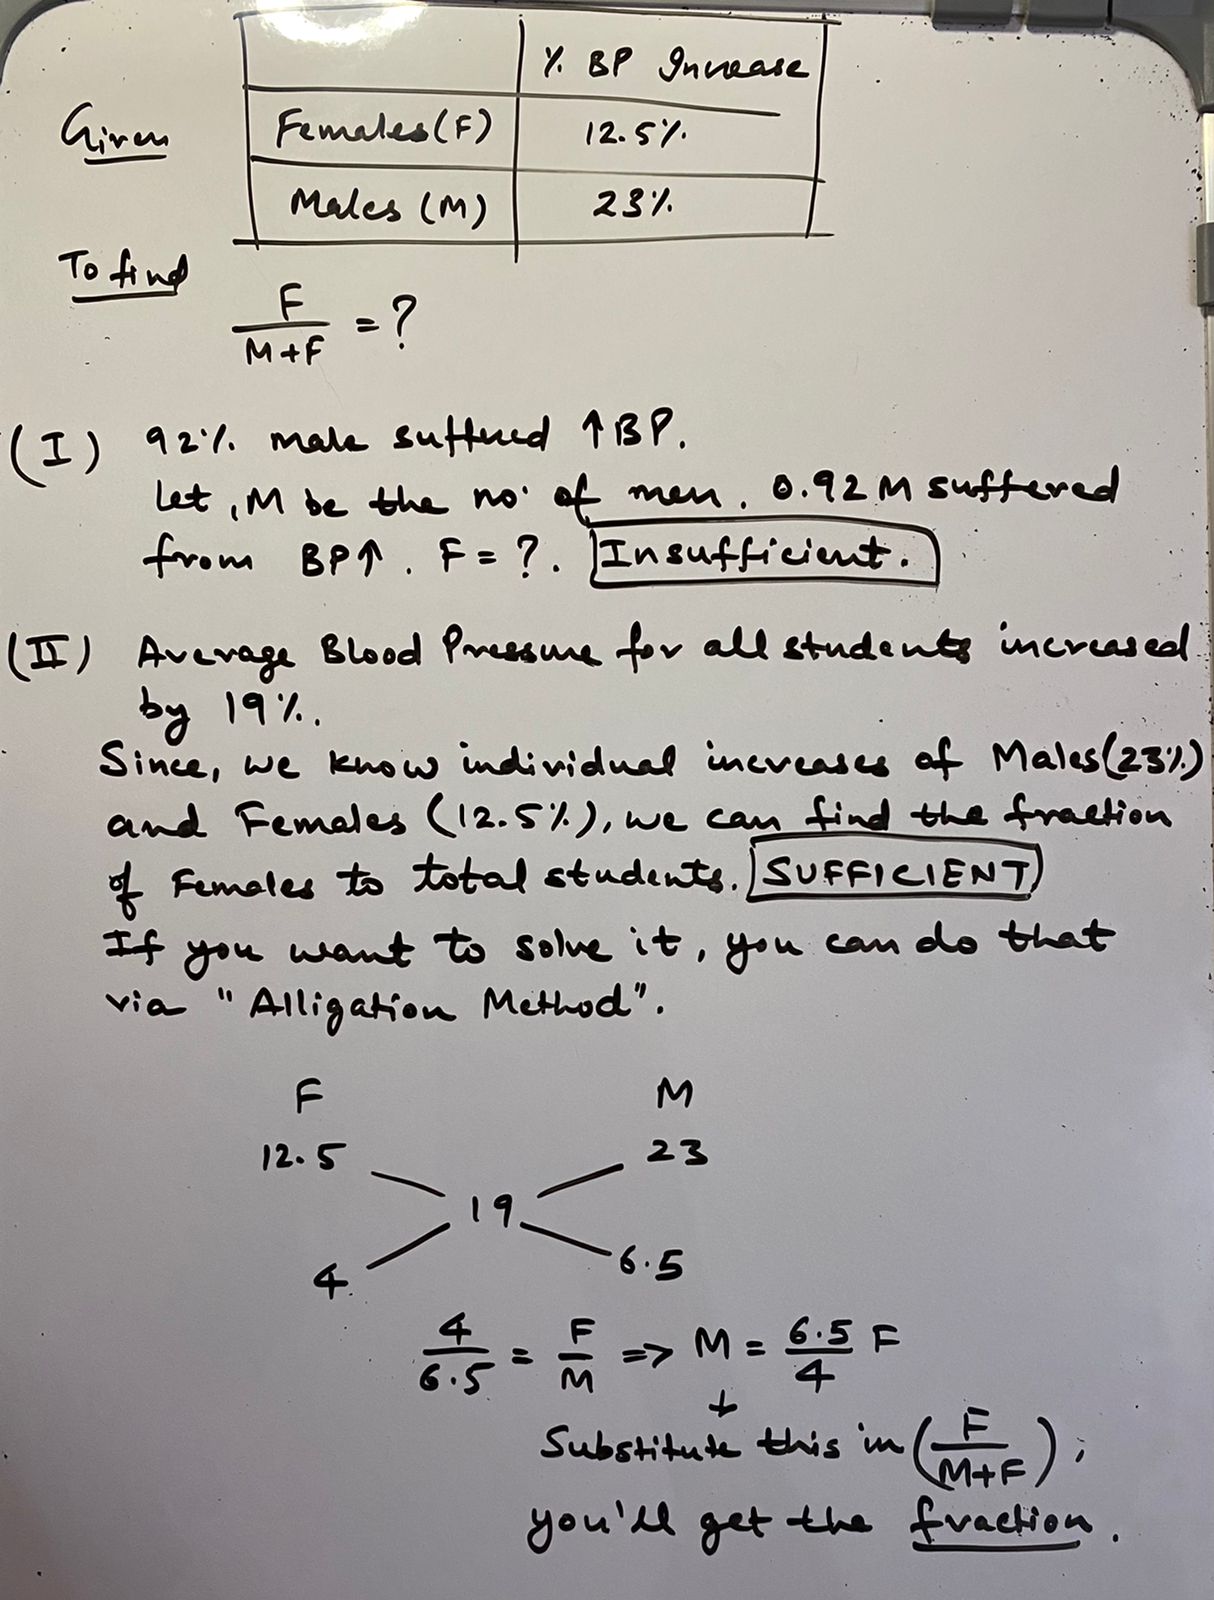 % BP Increase
Given Females (F) 12.5%
Males (M) 23%
To find
F/(M+F) = ?
(I) 92% male suffered ↑BP.
Let, M be the no. of men. 0.92M suffered
from BP↑. F = ?. Insufficient.
(II) Average Blood Pressure for all students increased
by 19%.
Since, we know individual increases of Males (23%)
and Females (12.5%), we can find the fraction
of Females to total students. SUFFICIENT
If you want to solve it, you can do that
via "Alligation Method".
F M
12.5 23
19
4 6.5
4/6.5 = F/M => M = 6.5/4 F
↓
Substitute this in (F/(M+F));
you'll get the fraction.